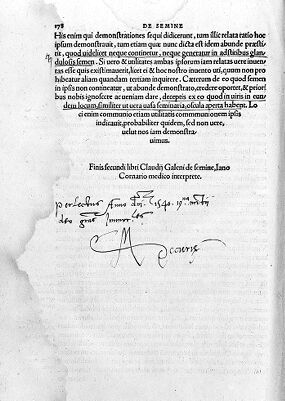 178 DE SEMINE
His enim qui demonstrationes sequi didicerunt, tum illic relata ratio hoc
ipsum demonstrauit, tum etiam quæ nunc dicta est idem abunde præsti-
tit, quod uidelicet neque continetur, neque generatur in adstitibus glan-
dulosis semen. Si uero & utilitates ambas ipsorum iam relatas uere inuen-
tas esse quis existimauerit, licet & hoc nostro inuento uti, quum non pro
hibeatur aliam quandam tertiam inquirere. Cæterum de eo quod semen
in ipsis non contineatur, ut abunde demonstrato, credere oportet, & priori
bus nobis ignoscere ac ueniam dare, deceptis ex eo quod in uiris in eun-
dem locum, similiter ut uera uasa seminaria, oscula aperta habent. Lo
ci enim communio etiam utilitatis communionem ipsis
indicauit, probabiliter quidem, sed non uere,
uelut nos iam demonstra
uimus.
Finis secundi libri Claudij Galeni de semine, Iano
Cornario medico interprete.
perlectus Anno 1540. 19
deo